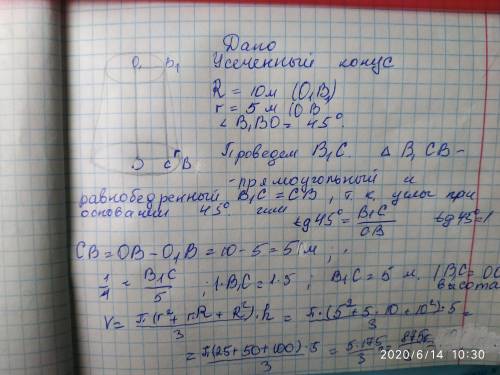 Дано
O₁ B₁
Усеченный конус
R = 10м (O₁B₁)
r = 5 м (OB)
∠ B₁BO = 45°.
O C B
Проведем B₁C. Δ B₁CB -
- прямоугольный и
равнобедренный B₁C = CB, т.к. углы при
основании 45° или tg45° = B₁C/OB tg45° = 1
CB = OB - O₁B = 10 - 5 = 5(м;
1/1 = B₁C/5 ; 1·B₁C = 1·5 ; B₁C = 5 м. (B₁C = OO
высота
V = π·(r² + rR + R²)·h/3 = π·(5² + 5·10 + 10²)·5/3 =
= π(25 + 50 + 100)·5/3 = 5·175/3 = 875
2020/6/14 10:30